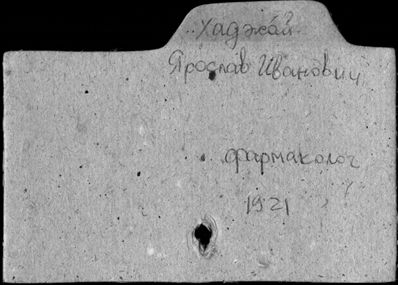 Хаджай
Ярослав Иванович
фармаколог
1921